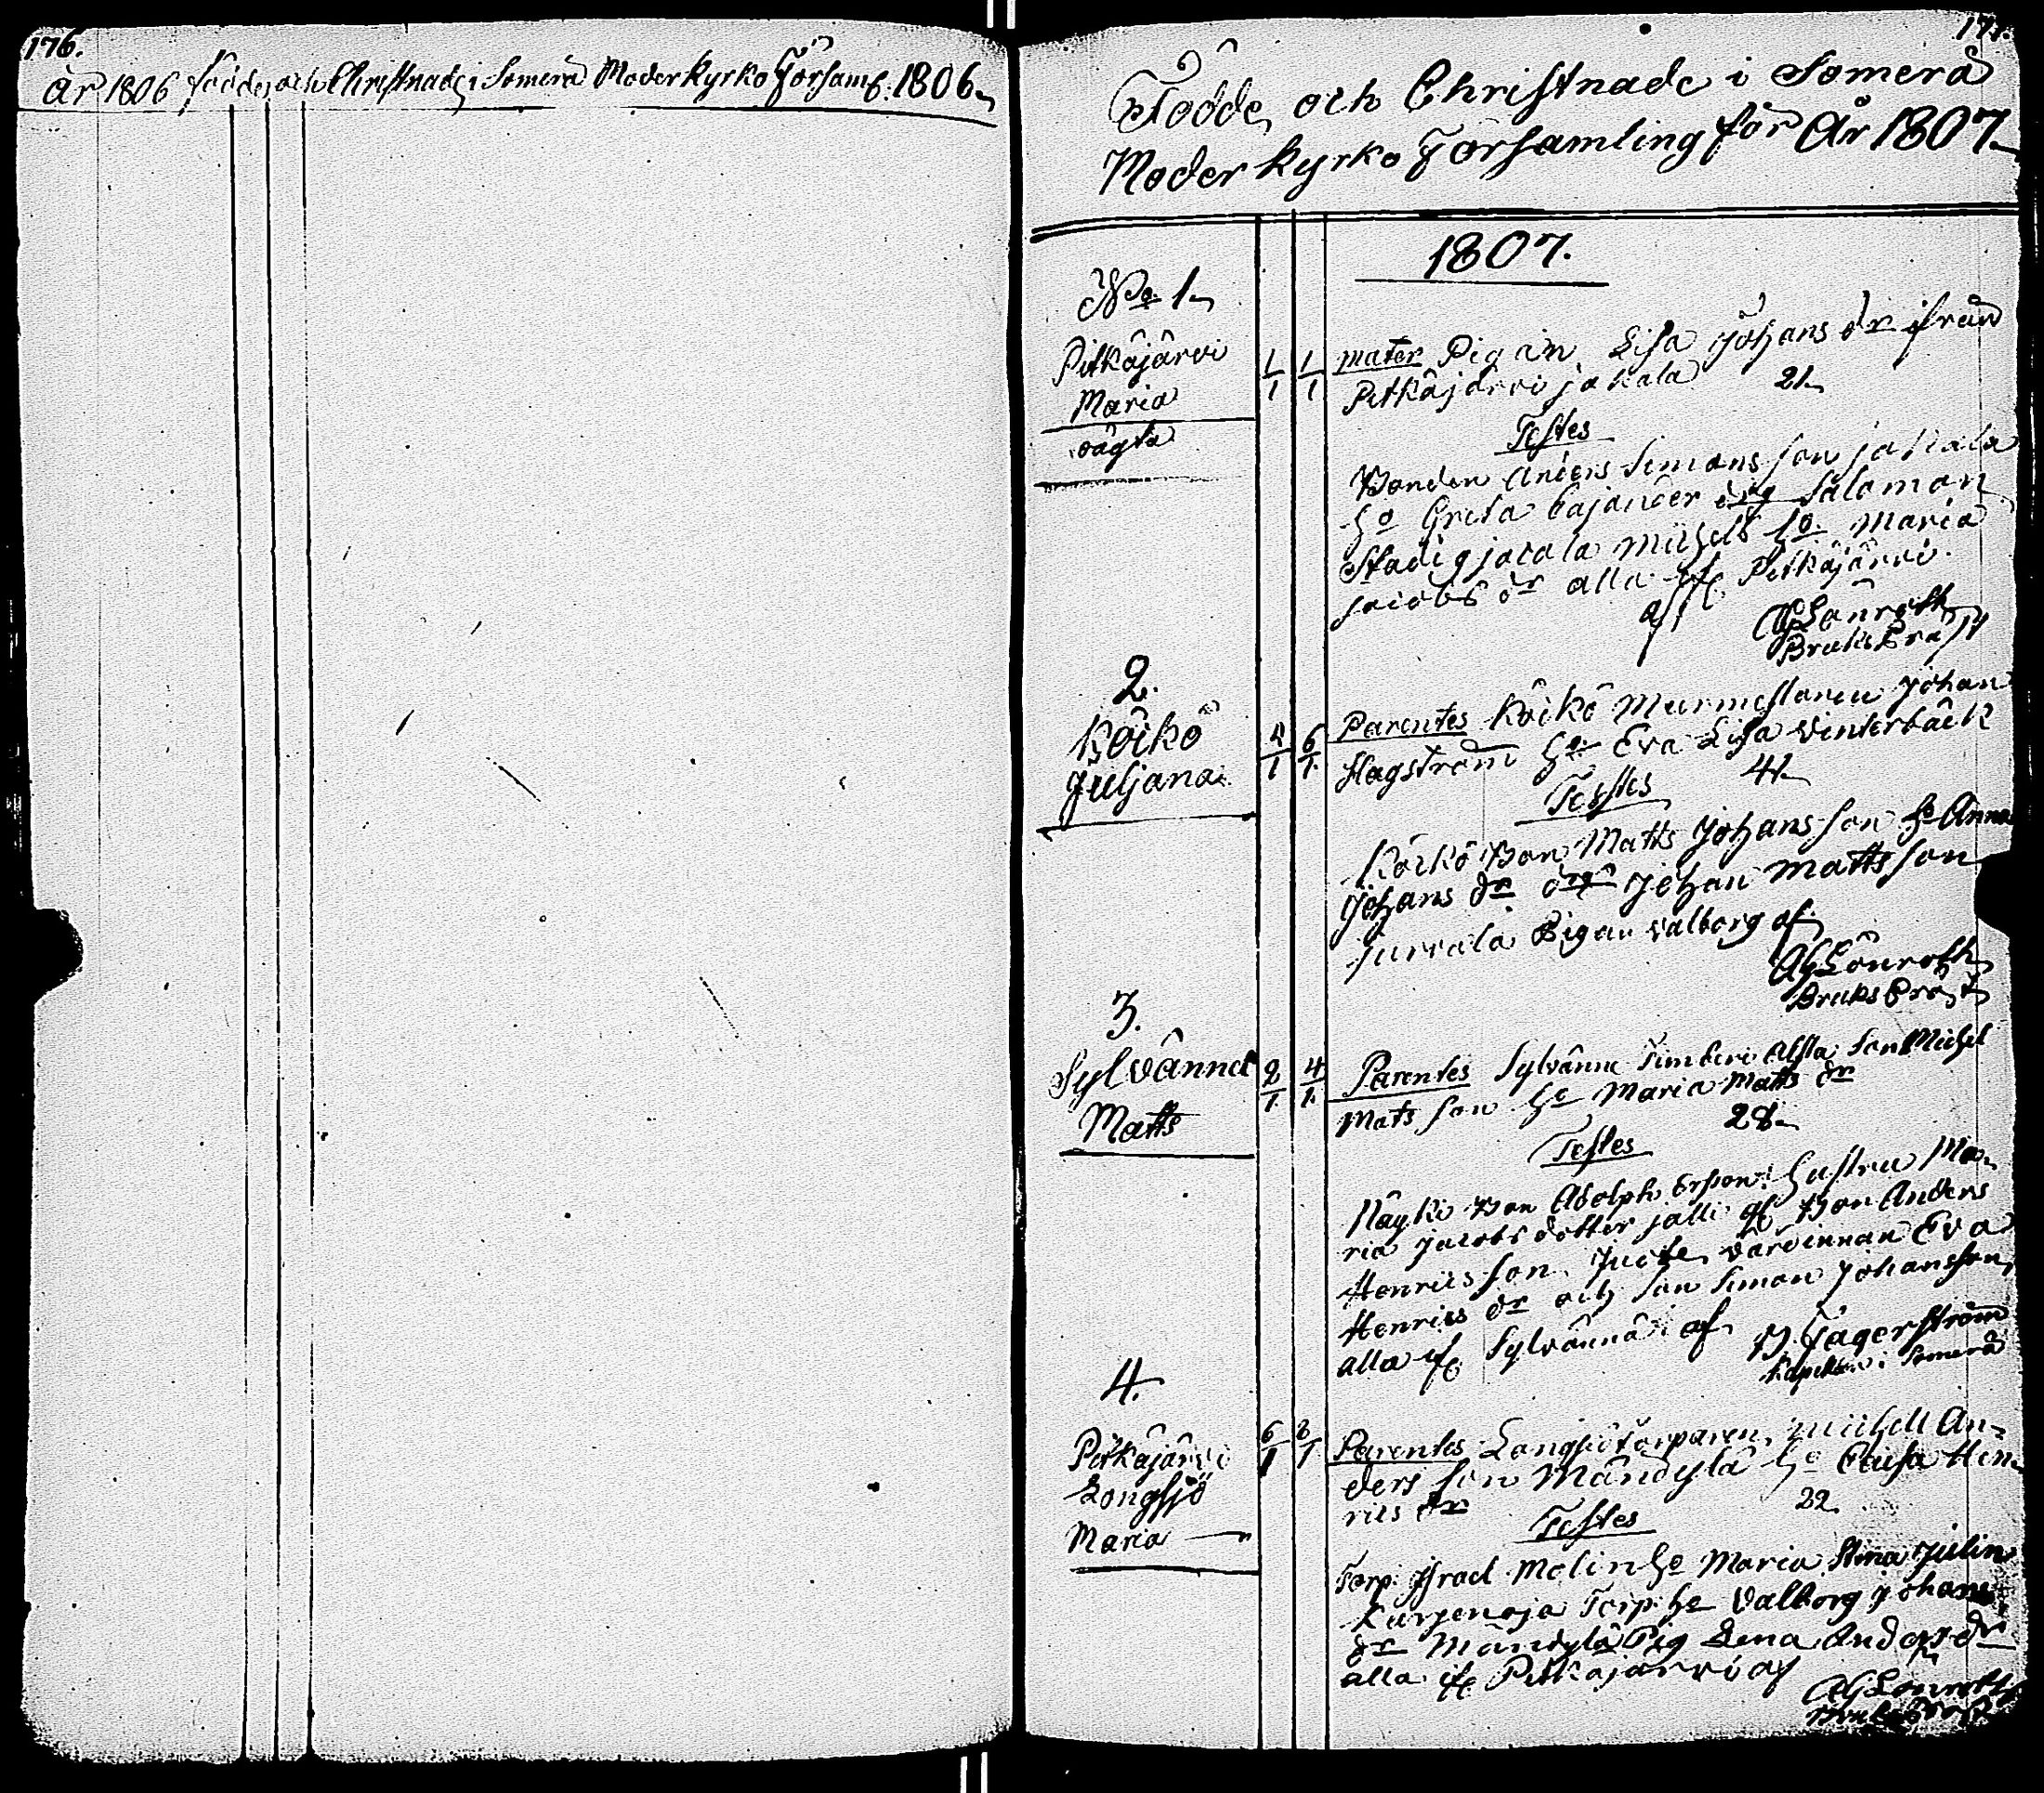 176.
År 1806 födde och Christnade i Somero Moderkyrko Församl: 1806.
177.
Födde och Christnade i Somerå
Moderkyrko Församling för År 1807.
1807.
No 1.
Pitkäjärvi
Maria
oägta
1/1 1/1
mater Pigan Lisa Johans dr ifrån
Pitkäjärvi jakala 21.
Testes
Bonden Anders Simons son jakala
ho Greta Cajander drg Salomon
Stadig jacala Michels ho Maria
Jacobs dr alla if Pitkäjärvi.
af AG Lönroth
Bruks Pred
2.
Köikö
Juljana
4/1 6/1
Parentes Köikö Murmestaren Johan
Hagström ho Eva Lisa Vinterbäck
41.
Testes
Köikö Bon Matts Johans son ho Anna
Johans dr drg Johan Matts son
Jurvala Pigan Valborg af
AG Lönroth
Bruks Pred
3.
Sylvänne
Matts
2/1 4/1
Parentes Sylvänne Simberi Son Michel
Mats son ho Maria Matts dr
28.
Testes
Näyki Bon Adolph Ersson Hustru Ma-
ria Jacobs dotter jalli af Bon Anders
Henrics son värdinnan Eva
Henrics dr och Son Simon Johansson,
alla if Sylvännä af Fagerström
Kapellan i Somerå
4.
Pitkäjärvi
Longsjö
Maria
6/1 8/1
Parentes Longsjö torparen Michell An-
ders son Mändylä ho Caisa Hen-
rics dr 22.
Testes
Torp. Israel Molin ho Maria Stina Julin
Torp. ho Valborg Johans
dr Mändylä Pig Lena Anders dr
alla if Pitkäjärvi af
AG Lönroth
Bruks Pred